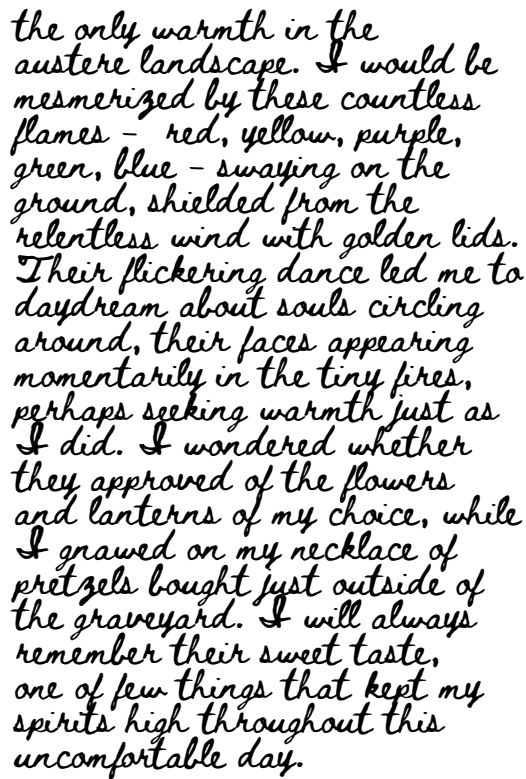 the only warmth in the
austere landscape. I would be
mesmerized by these countless
flames - red, yellow, purple,
green, blue - swaying on the
ground, shielded from the
relentless wind with golden lids.
Their flickering dance led me to
daydream about souls circling
around, their faces appearing
momentarily in the tiny fires,
perhaps seeking warmth just as
I did. I wondered whether
they approved of the flowers
and lanterns of my choice, while
I gnawed on my necklace of
pretzels bought just outside of
the graveyard. I will always
remember their sweet taste,
one of few things that kept my
spirits high throughout this
uncomfortable day.